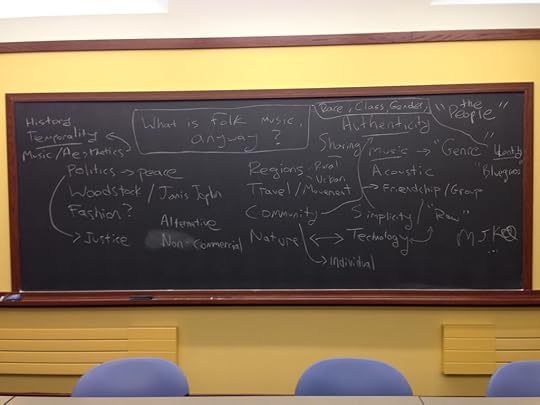 What is folk music,
anyway?
History
Temporality
Music/Aesthetics
Politics → peace
Woodstock / Janis Joplin
Fashion?
→ Justice
Alternative
Non-Commercial
Regions - Rural
Urban
Travel / Movement
Community
Nature ↔ Technology
→ Individual
Race, Class, Gender,
"the
People"
Authenticity
Sharing
Music → "Genre"
Identity
"Bluegrass"
Acoustic
→ Friendship/Group
Simplicity / "Raw"
...